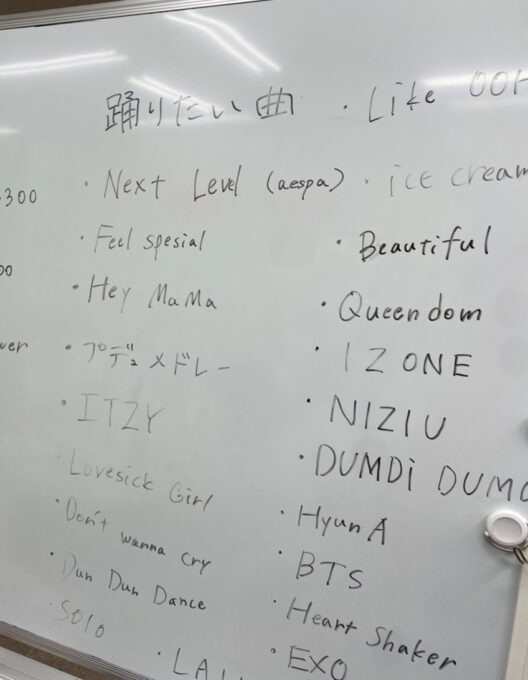 踊りたい曲
・Next Level (aespa)
・Feel spesial
・Hey MaMa
・プデュメドレー
・ITZY
・Lovesick Girl
・Don't wanna cry
・Dun Dun Dance
・Solo
・Like OOH
・ice cream
・Beautiful
・Queendom
・IZONE
・NIZIU
・DUMDi DUMD
・HyunA
・BTS
・Heart Shaker
・EXO
300